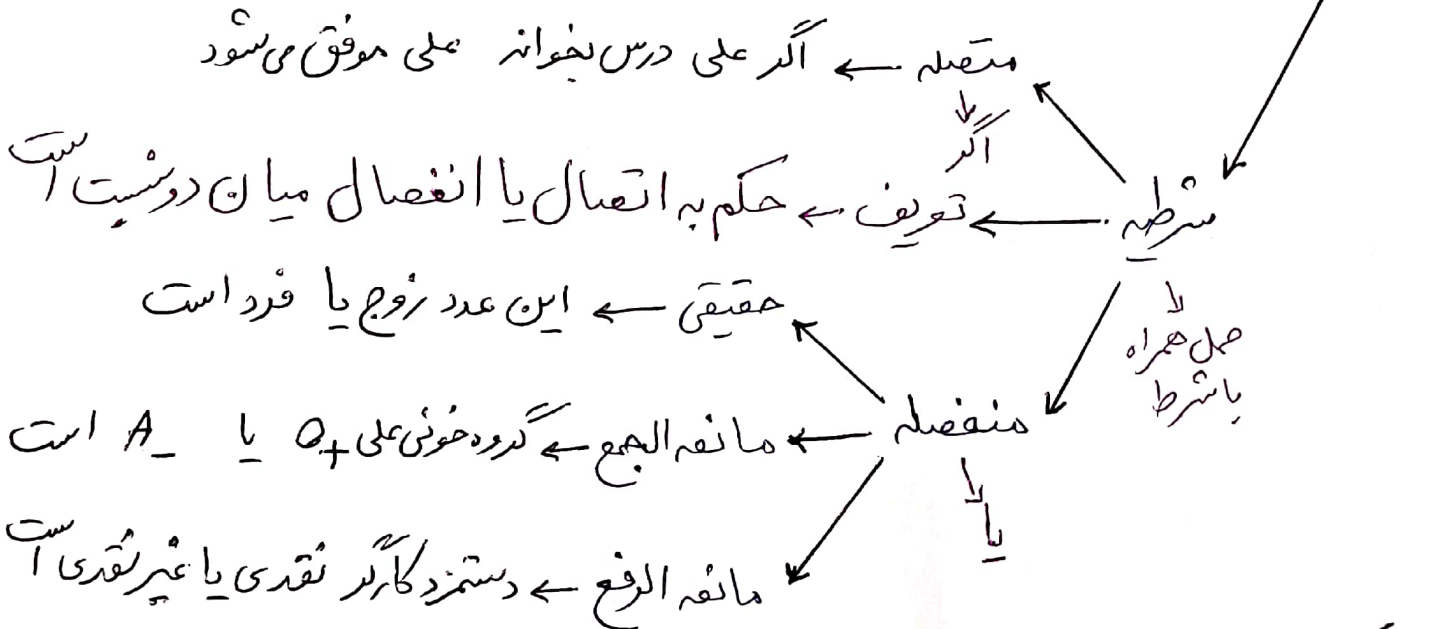 متصله ← اگر علی درس بخواند علی موفق می‌شود
اگر
شرطیه ← تعریف ← حکم به اتصال یا انفصال میان دو نسبت است
حمل همراه
با شرط
حقیقی ← این عدد زوج یا فرد است
منفصله ← مانعه الجمع ← گروه خونی علی O+ یا A- است
یا
مانعه الرفع ← دستمزد کارگر نقدی یا غیر نقدی است